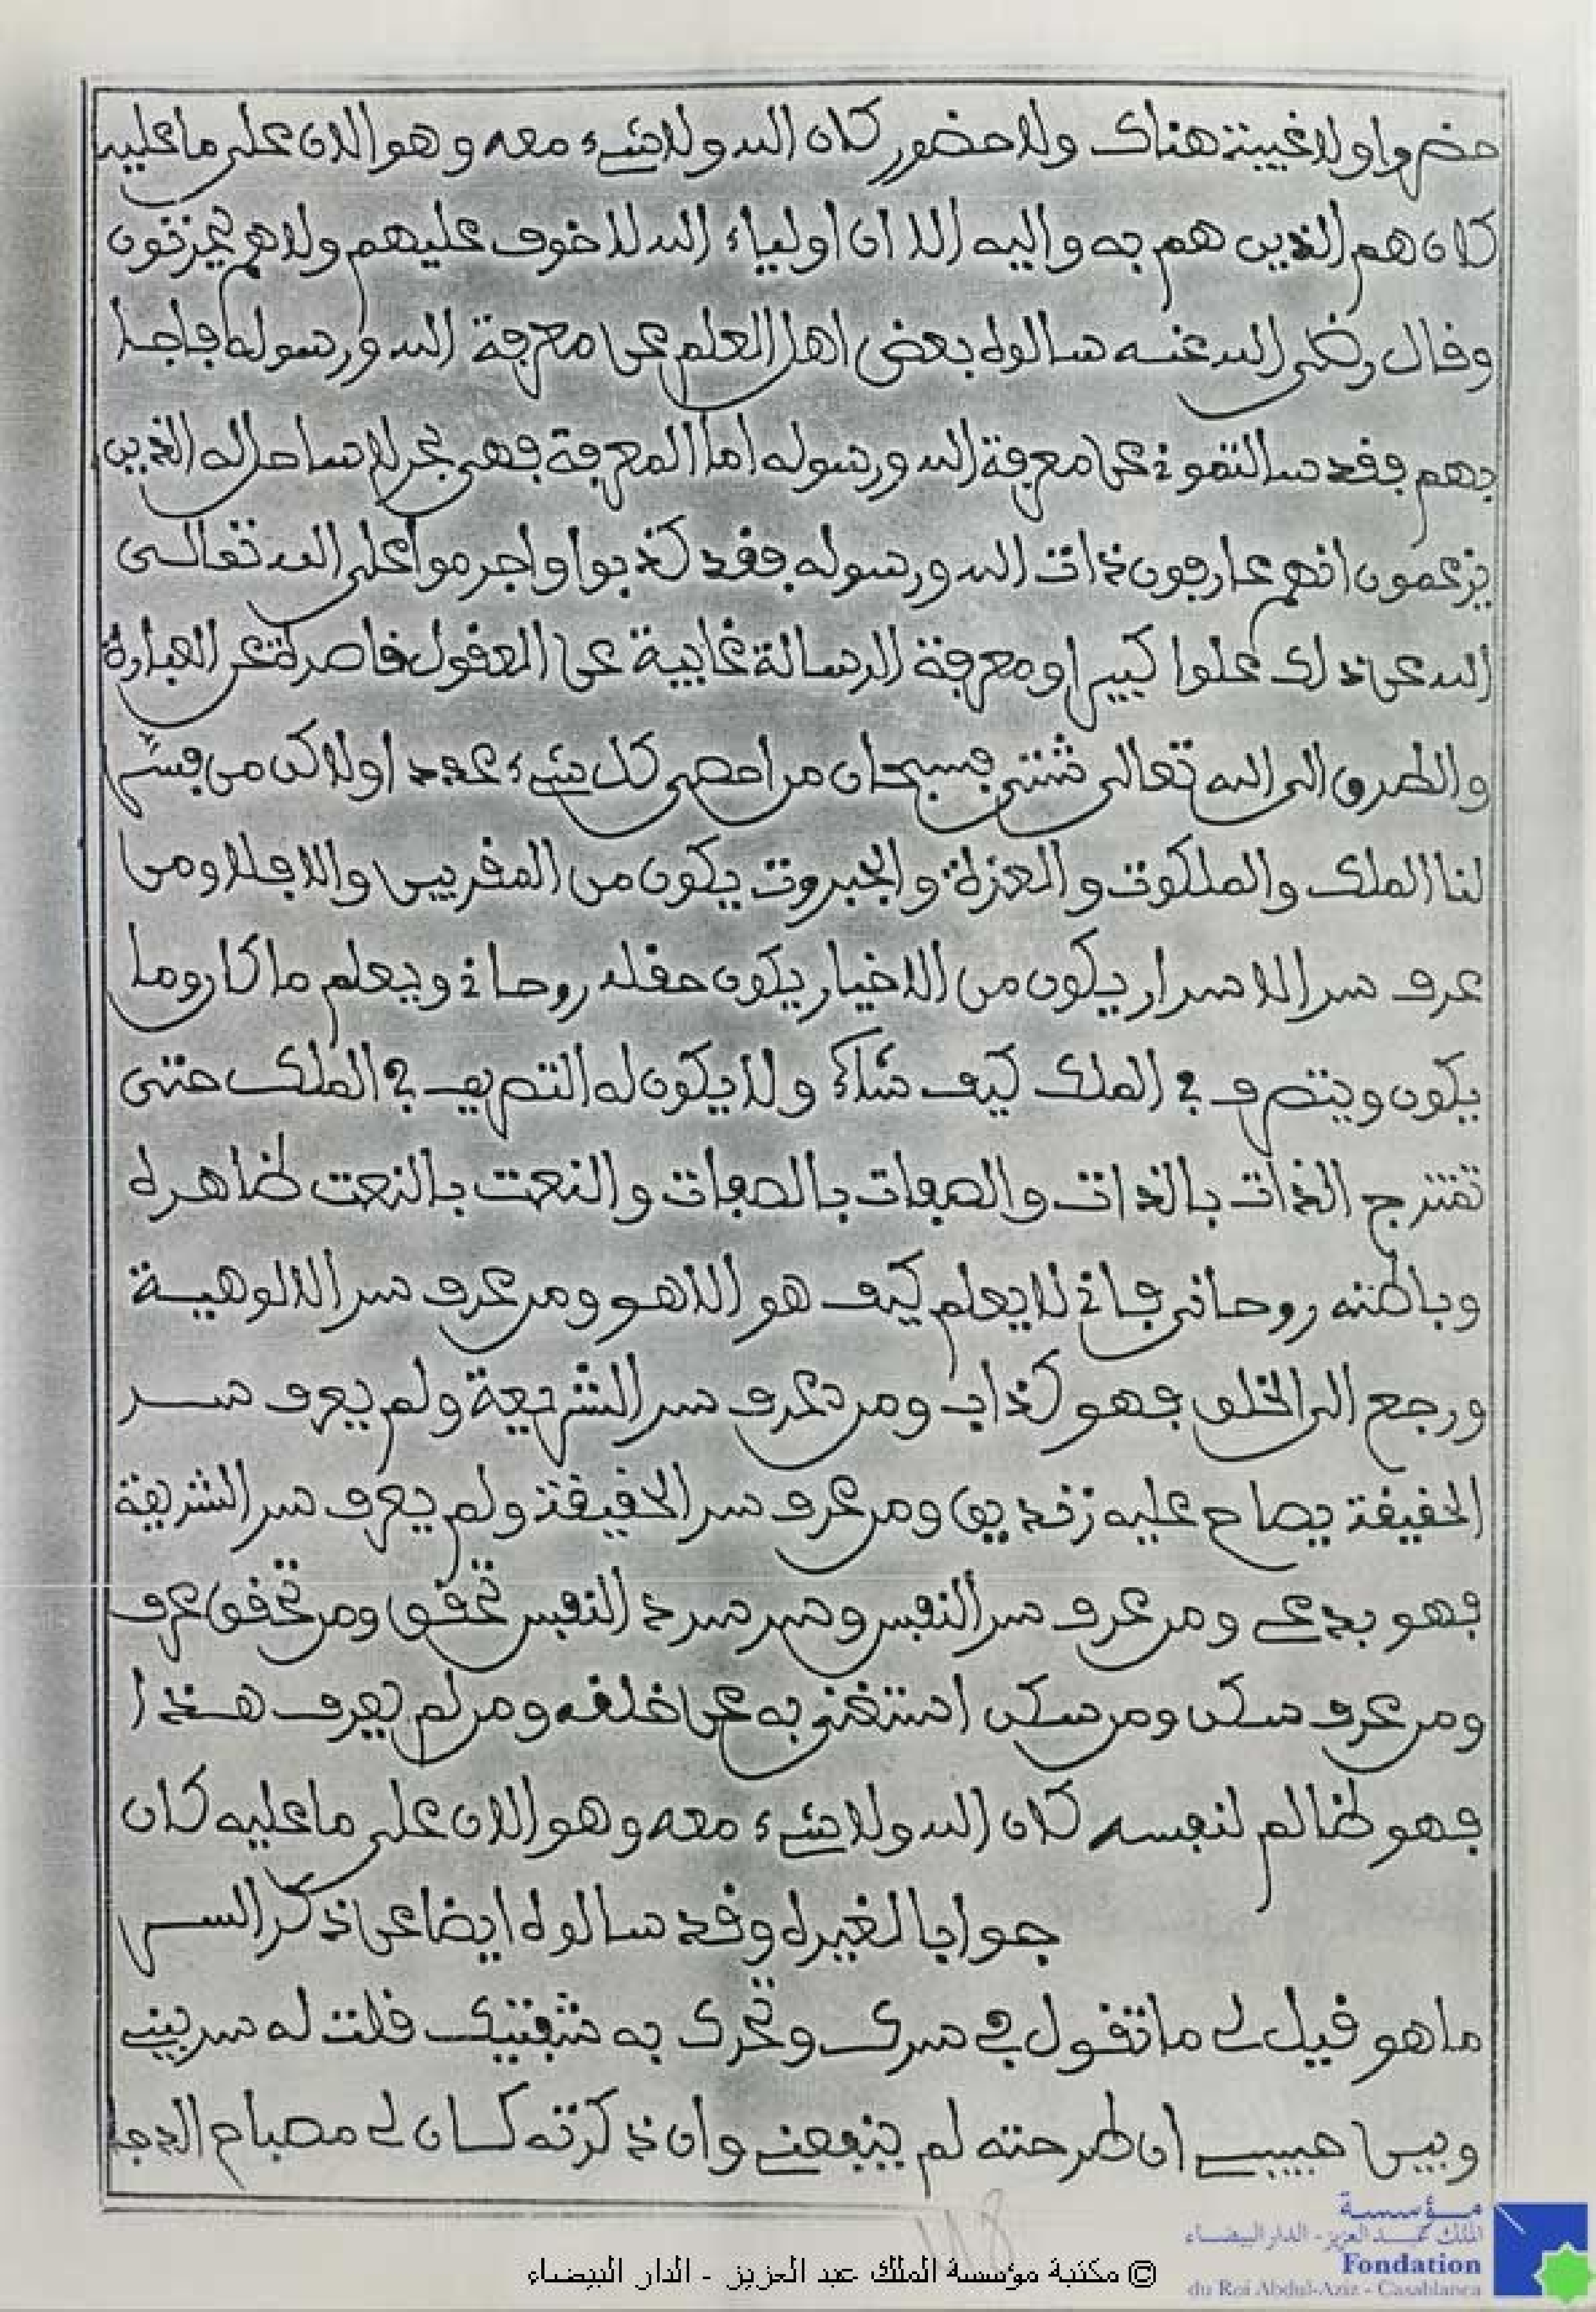 حضروا ولا غيبة هناك ولا حضور كان الله ولا شيء معه وهو الان على ما عليه
كان هم الذين هم به واليه الا ان اولياء الله لا خوف عليهم ولا هم يحزنون
وقال رضي الله عنه سالوه بعض اهل العلم عن معرفة الله ورسوله فاجا
بهم فقد سالتموني عن معرفة الله ورسوله اما المعرفة فهي بحر لا ساحل له الذين
يزعمون انهم عارفون ذات الله ورسوله فقد كذبوا واجرموا على الله تعالى
الله عن ذلك علوا كبيرا ومعرفة الرسالة غايبة عن العقول قاصرة عن العبارة
والطرق الى الله تعالى شتى فسبحان من احصى كل شيء عددا ولاكن من فسر
لنا الملك والملكوت والعزة والجبروت يكون من المقربين والا فلا ومن
عرف سر الاسرار يكون من الاخيار يكون عقله روحاني ويعلم ما كان وما
يكون ويتصرف في الملك كيف شاء ولا يكون له التصريف في الملك حتى
تمتزج الذات بالذات والصفات بالصفات والنعت بالنعت ظاهره
وباطنه روحاني فاني لا يعلم كيف هو الا هو ومن عرف سر الالوهية
ورجع الى الخلق فهو كذاب ومن عرف سر الشريعة ولم يعرف سر
الحقيقة يصاح عليه زنديق ومن عرف سر الحقيقة ولم يعرف سر الشريعة
فهو بدعي ومن عرف سر النفس وسر سر ذ النفس تحقق ومن تحقق عرف
ومن عرف سكن ومن سكن استغنى به عن خلقه ومن لم يعرف هذا
فهو ظالم لنفسه كان الله ولا شيء معه وهو الان على ما عليه كان
جوابا لغيره وقد سالوه ايضا عن ذكر السر
ما هو قيل لي ما تقول في سرك وتحرك به شفتيك قلت له سر بيني
وبين حبيبي ان طرحته لم ينفعني وان ذكرته كان لي مصباح الدجا
118
مؤسسة
الملك عبد العزيز - الدار البيضاء
Fondation
du Roi Abdul-Aziz - Casablanca
© مكتبة مؤسسة الملك عبد العزيز - الدار البيضاء